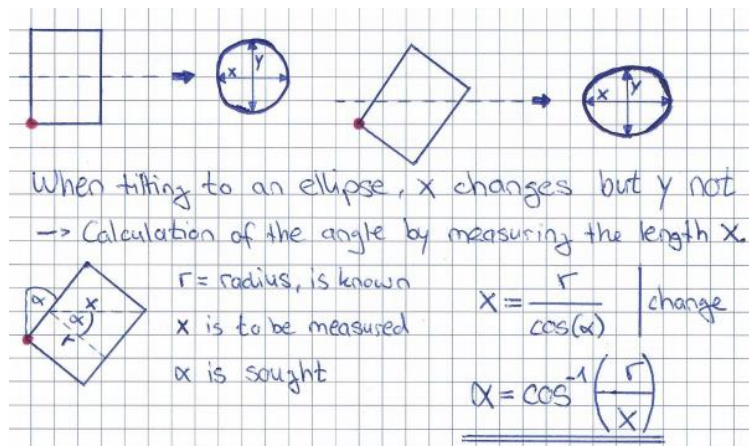 x y x y
When tilting to an ellipse, x changes but y not
--> Calculation of the angle by measuring the length X.
α x α r
r = radius, is known
x is to be measured
α is sought
X = r / cos(α) | change
α = cos⁻¹(r / x)